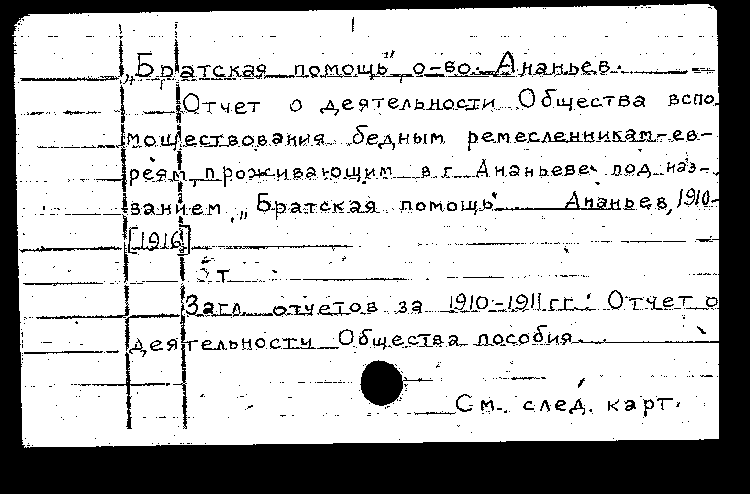 „Братская помощь" о-во. Ананьев.
Отчет о деятельности Общества вспо
моществования бедным ремесленникам-ев-
реям, проживающим в г. Ананьеве под наз-
ванием „Братская помощь" Ананьев, 1910-
[1916]
5 т
Загл. отчетов за 1910-1911 гг.: Отчет о
деятельности Общества пособия...
См. след. карт.